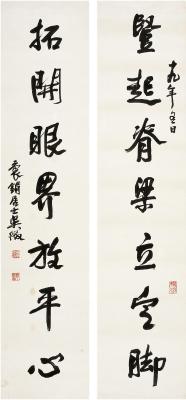 豎起脊梁立定脚
十九年日
拓開眼界放平心
袌鋗居士吳徵